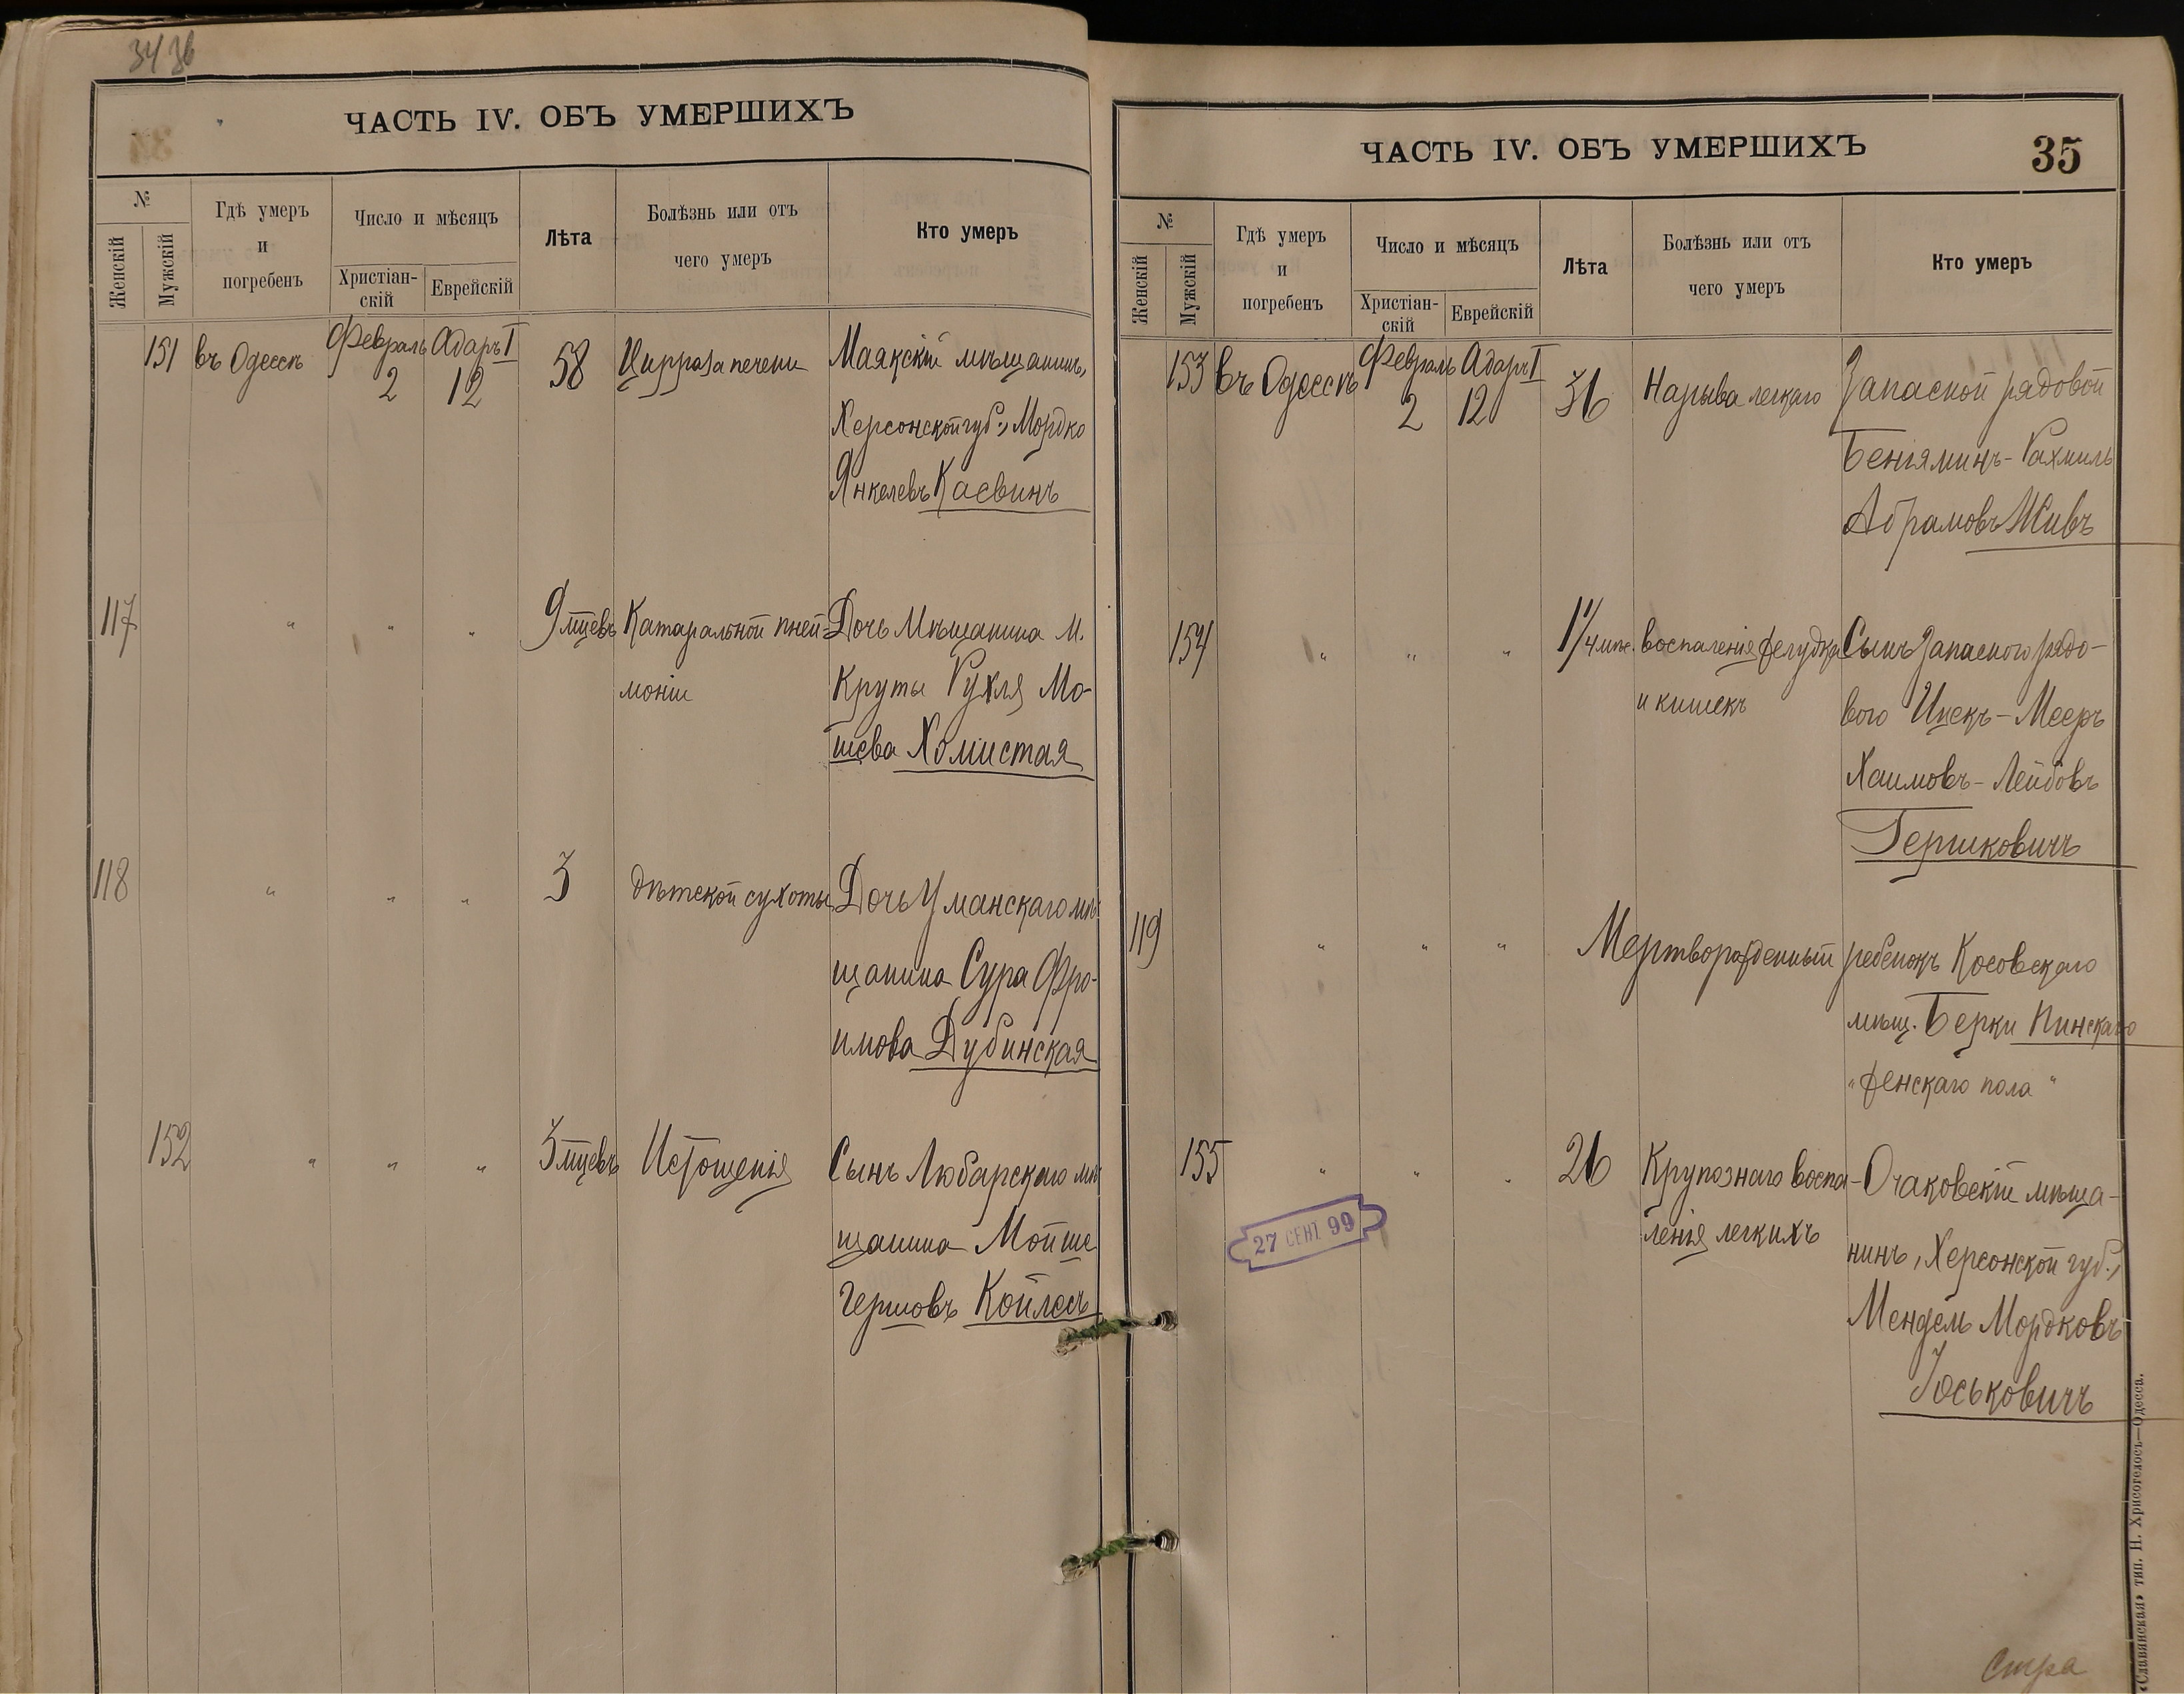 34 36
ЧАСТЬ IV. ОБЪ УМЕРШИХЪ
№
Женскій
Мужскій
Гдѣ умеръ
и
погребенъ
Число и мѣсяцъ
Христіан-
скій
Еврейскій
Лѣта
Болѣзнь или отъ
чего умеръ
Кто умеръ
151 въ Одессѣ Февраль 2 Адаръ I 12 58 Цирроза печени Маякскій мѣщанинъ,
Херсонской губ., Мордко
Янкелевъ Касвинъ
117 " " " 9 мцевъ Катаральной пней- Дочь Мѣщанина м.
моніи Круты Рухля Мо-
шева Хомистая
118 " " " 3 дѣтской сухоты Дочь Уманскаго мѣ
щанина Сура Фро-
имова Дубинская
152 " " " 3 мцевъ Истощенія Сынъ Любарскаго мѣ
щанина Мойше
Гершовъ Койлесъ
ЧАСТЬ IV. ОБЪ УМЕРШИХЪ
35
№
Женскій
Мужскій
Гдѣ умеръ
и
погребенъ
Число и мѣсяцъ
Христіан-
скій
Еврейскій
Лѣта
Болѣзнь или отъ
чего умеръ
Кто умеръ
153 въ Одессѣ Февраль 2 Адаръ I 12 36 Нарыва легкаго Запасной рядовой
Беніяминъ-Рахмиль
Абрамовъ Живъ
154 " " " 1 1/4 мѣс. воспаленія желудка Сынъ Запасного рядо-
и кишекъ вого Ицекъ-Мееръ
Хаимовъ-Лейбовъ
Гершковичъ
119 " " " Мертворожденный ребенокъ Косовскаго
мѣщ. Берки Пинскаго
"женскаго пола"
155 " " " 26 Крупознаго воспа- Очаковскій мѣща-
ленія легкихъ нинъ, Херсонской губ.,
Мендель Мордковъ
Іоськовичъ
27 СЕНТ 99
Стра
«Славянская» тип. Н. Хрисогелосъ—Одесса.